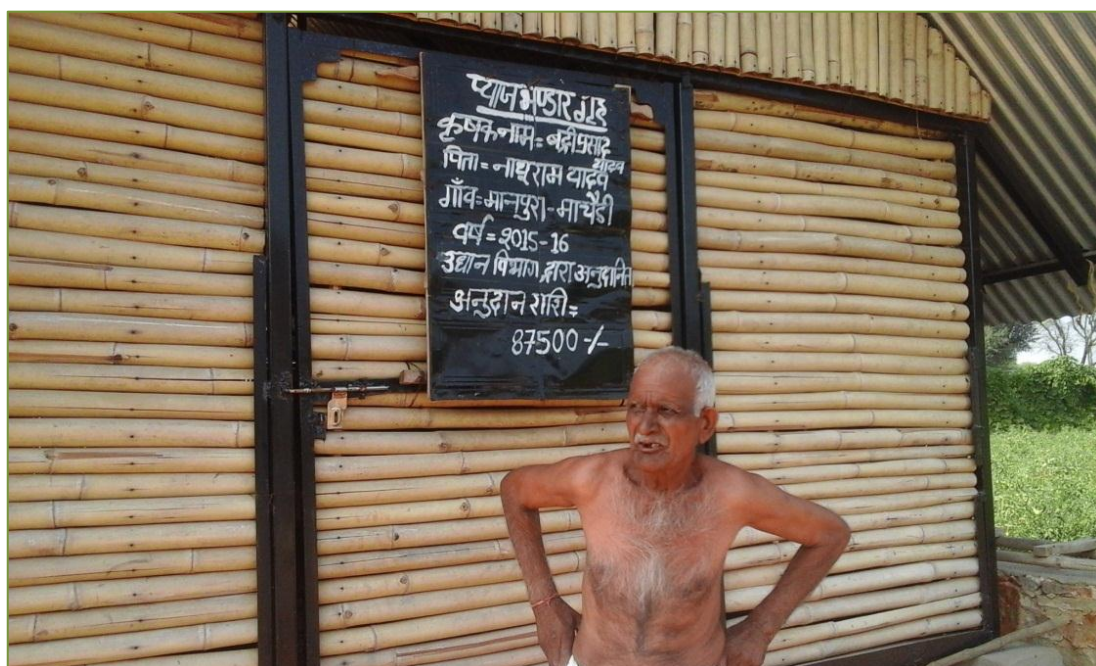 प्याज भण्डार गृह
कृषक नाम = बद्रीप्रसाद यादव
पिता = नाथूराम यादव
गाँव = मानपुरा - माचैडी
वर्ष = 2015-16
उद्यान विभाग द्वारा अनुदानित
अनुदान राशि =
87500 -/-